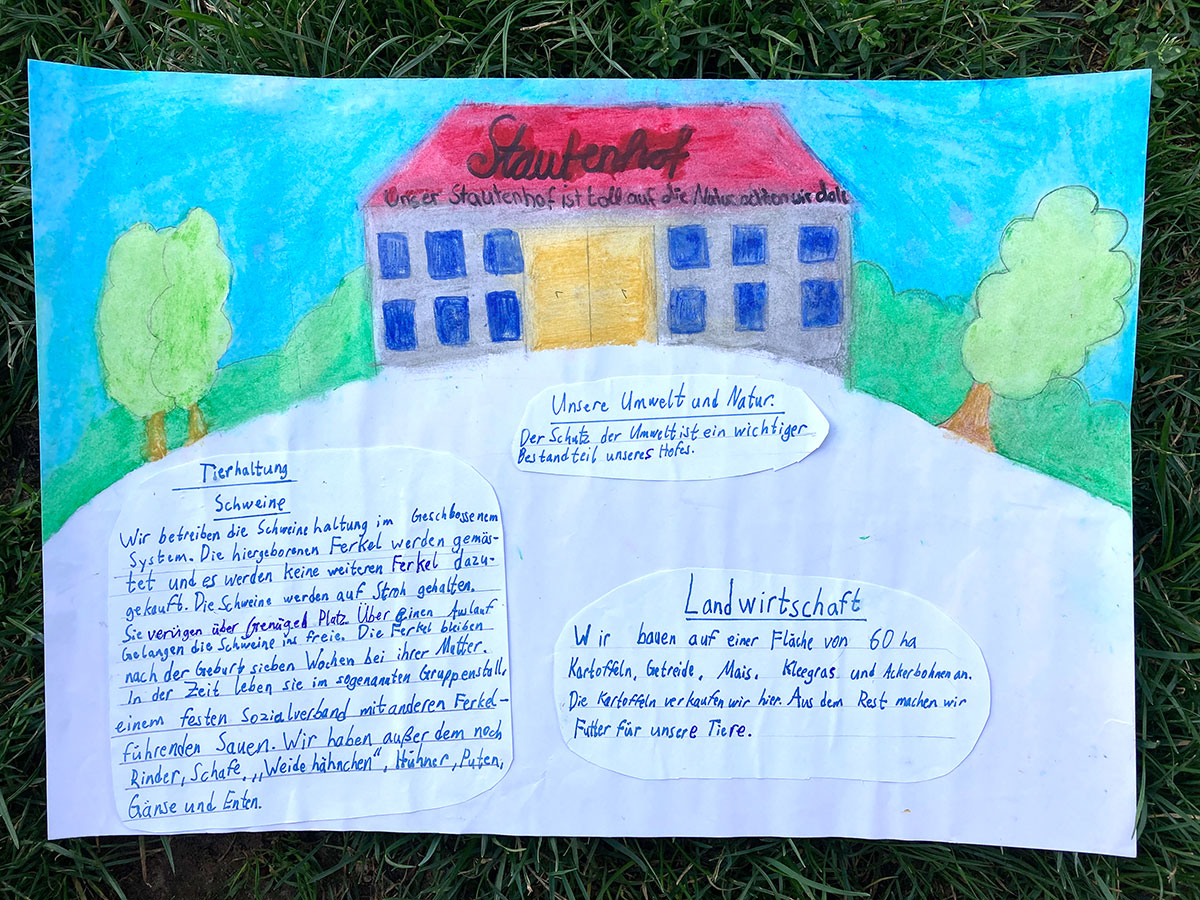 Stautenhof
Unser Stautenhof ist toll auf die Natur achten wir doll
Unsere Umwelt und Natur.
Der Schutz der Umwelt ist ein wichtiger
Bestandteil unseres Hofes.
Tierhaltung
Schweine
Wir betreiben die Schweinehaltung im Geschlossenem
System. Die hiergeborenen Ferkel werden gemäs-
tet und es werden keine weiteren Ferkel dazu-
gekauft. Die Schweine werden auf Stroh gehalten.
Sie verügen über Genüged Platz Über einen Auslauf
Gelangen die Schweine ins freie. Die Ferkel bleiben
nach der Geburt sieben Wochen bei ihrer Mutter.
In der Zeit leben sie im sogenannten Gruppenstall,
einem festen Sozialverband mit anderen Ferkel-
führenden Sauen. Wir haben außer dem noch
Rinder, Schafe, „Weidehähnchen", Hühner, Puten,
Gänse und Enten.
Landwirtschaft
Wir bauen auf einer Fläche von 60 ha
Kartoffeln, Getreide, Mais, Kleegras und Ackerbohnen an.
Die Kartoffeln verkaufen wir hier. Aus dem Rest machen wir
Futter für unsere Tiere.